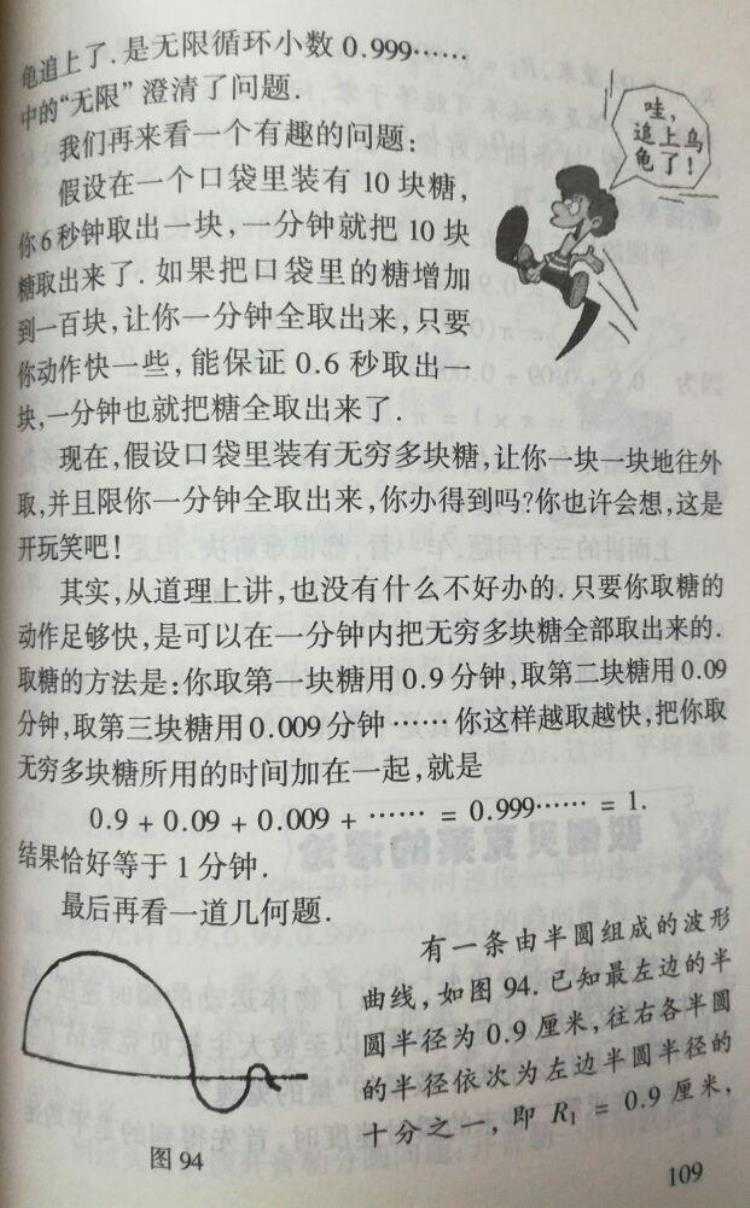 龟追上了.是无限循环小数0.999……
中的“无限”澄清了问题.
我们再来看一个有趣的问题:
假设在一个口袋里装有10块糖,
你6秒钟取出一块,一分钟就把10块
糖取出来了.如果把口袋里的糖增加
到一百块,让你一分钟全取出来,只要
你动作快一些,能保证0.6秒取出一
块,一分钟也就把糖全取出来了.
哇,
追上乌
龟了!
现在,假设口袋里装有无穷多块糖,让你一块一块地往外
取,并且限你一分钟全取出来,你办得到吗?你也许会想,这是
开玩笑吧!
其实,从道理上讲,也没有什么不好办的.只要你取糖的
动作足够快,是可以在一分钟内把无穷多块糖全部取出来的.
取糖的方法是:你取第一块糖用0.9分钟,取第二块糖用0.09
分钟,取第三块糖用0.009分钟……你这样越取越快,把你取
无穷多块糖所用的时间加在一起,就是
0.9 + 0.09 + 0.009 + …… = 0.999…… = 1.
结果恰好等于1分钟.
最后再看一道几何题.
有一条由半圆组成的波形
曲线,如图94.已知最左边的半
圆半径为0.9厘米,往右各半圆
的半径依次为左边半圆半径的
十分之一,即 R₁ = 0.9厘米,
图94
109